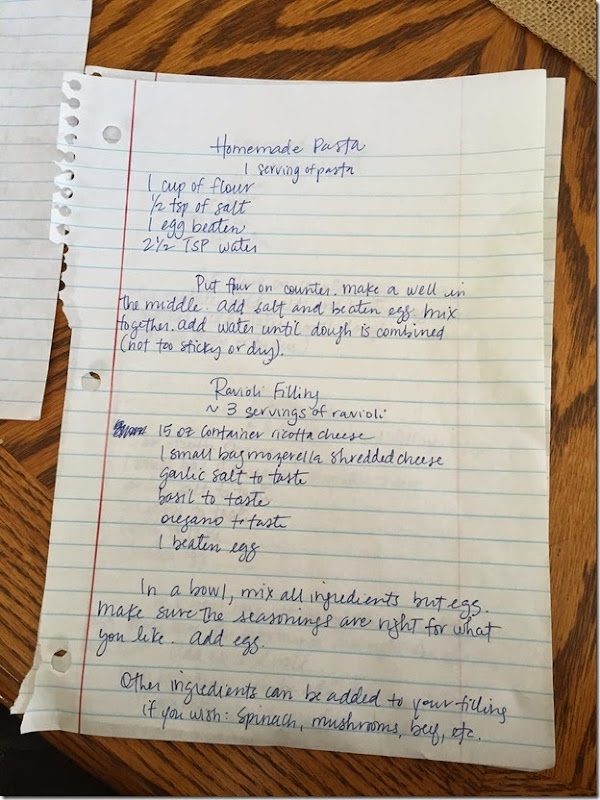 Homemade Pasta
1 serving of pasta
1 cup of flour
1/2 tsp of salt
1 egg beaten
2 1/2 TSP water
Put flour on counter. make a well in
the middle. add salt and beaten egg mix
together. add water until dough is combined
(not too sticky or dry).
Ravioli Filling
~ 3 servings of ravioli
15 oz container ricotta cheese
1 small bag mozerella shredded cheese
garlic salt to taste
basil to taste
oregano to taste
1 beaten egg
In a bowl, mix all ingredients but egg.
make sure the seasonings are right for what
you like. add egg.
Other ingredients can be added to your filling
if you wish: spinach, mushrooms, beef, etc.